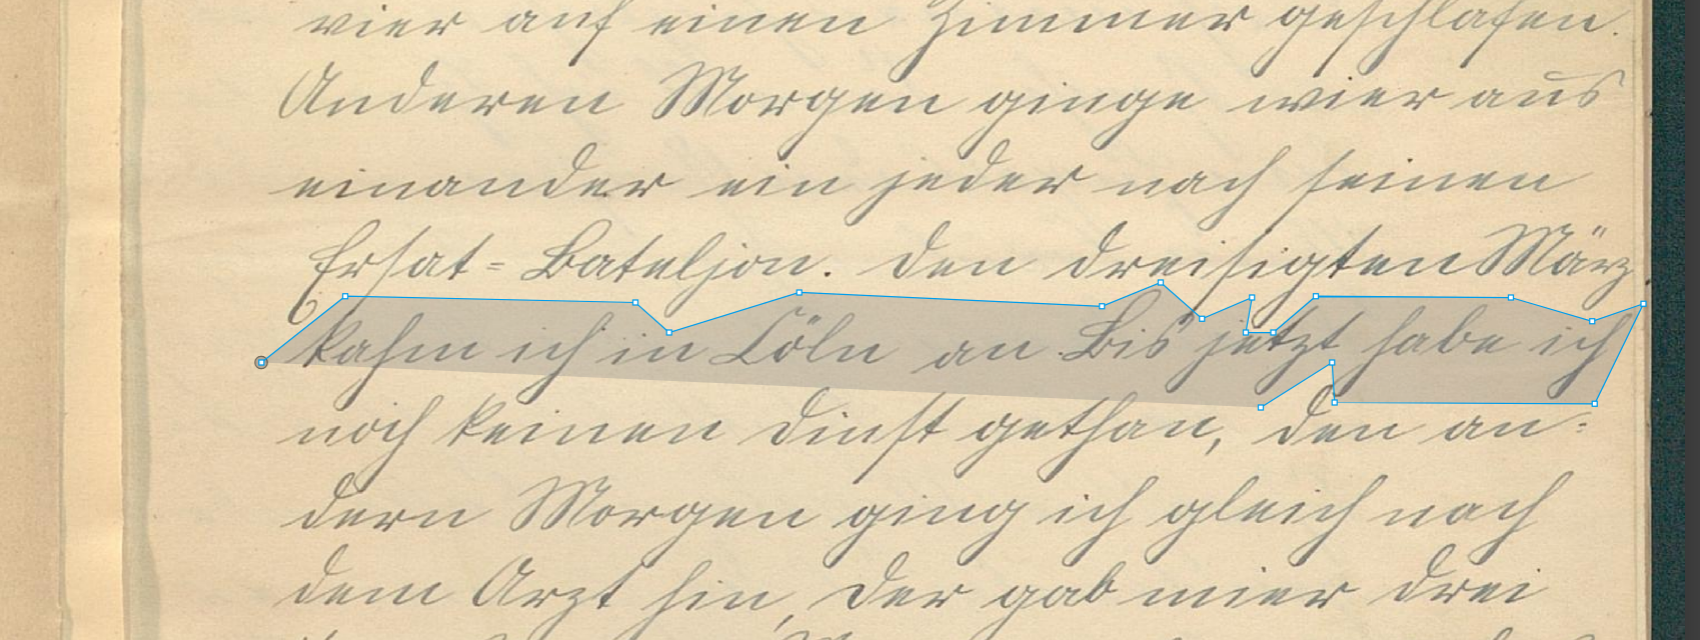 vier auf einen Zimmer geschlafen.
Anderen Morgen ginge wier aus
einander ein jeder nach seinen
Ersat-Bateljon. den dreisigten März.
kahm ich in Cöln an Bis jetzt habe ich
noch keinen dinst gethan, den an-
dern Morgen ging ich gleich nach
dem Arzt hin, der gab mier drei